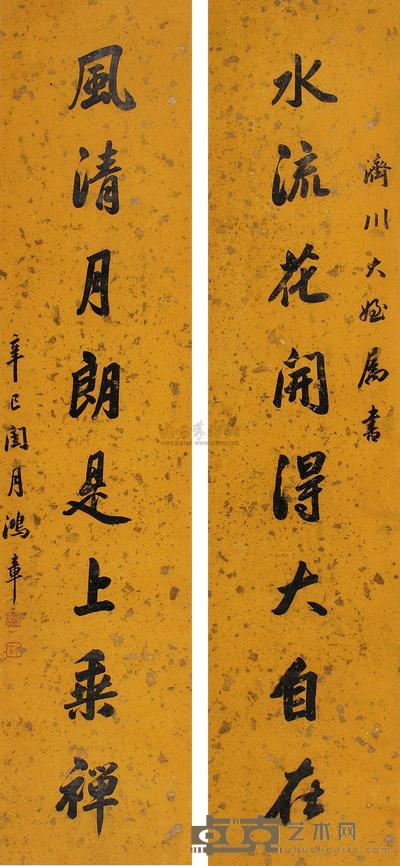 濟川大姪屬書
水流花開得大自在
風清月朗是上乘禪
辛巳閏月鴻章
卓克艺术网
zhuokearts.com